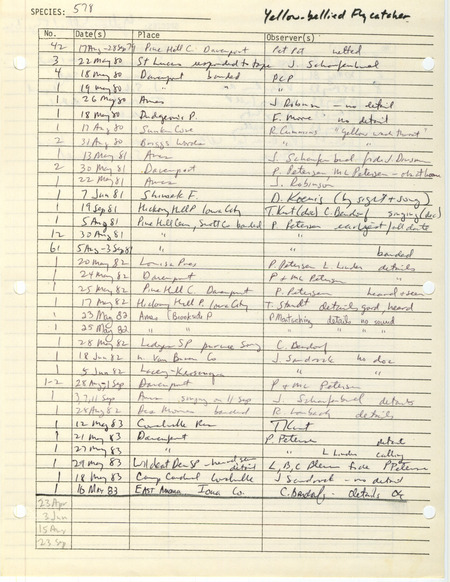 SPECIES: 578 Yellow-bellied Flycatcher
No. Date(s) Place Observer(s)
42 17Aug-28Sep79 Pine Hill C. Davenport Pet Pet netted
3 22 May 80 St Lucas responded to tape J. Schaufenbuel
4 18 May 80 Davenport banded PCP
1 19 May 80 " "
26 May 80 Ames J Robinson - no detail
1 18 May 80 P. F. Moore no detail
1 17 Aug 80 Cove R. Cummins "Yellow throat"
2 31 Aug 80 Briggs Woods " "
1 13 May 81 Ames J. Schaufenbuel
2 30 May 81 Davenport P. Petersen Mc Petersen
1 22 May 81 Ames J. Robinson
1 7 Jun 81 Shimek F. D. Koenig (by sight + song)
1 19 Sep 81 Hickory Hill P Iowa City T Kent (doc) C. Bendorf singing (doc)
1 5 Aug 81 Pine Hill Cem, Scott Co banded P Petersen earliest fall date
12 30 Aug 81 " "
61 5 Aug-3Sep81 " " banded
1 20 May 82 Louisa P Petersen L. Linder details
1 24 May 82 Davenport P + M Petersen "
1 25 May 82 Pine Hill C. Davenport P. Petersen heard + seen
17 May 82 Hickory Hill P. Iowa City T. Staudt details good, heard
1 23 May 82 Ames Brookside P P Martsching details no sound
25 May 82 " " " " "
1 28 May 82 Ledges SP Song C. Bendorf
1 18 Jun 82 n. Van Buren Co J. Sandrock no doc
1 5 Jun 82 Lacey-Keosauqua " "
1-2 28 Aug, 1 Sep Davenport P + M Petersen
1 3,7,11 Sep Ames singing on 11 Sep J. Schaufenbuel details
1 28 Aug 82 Des Moines banded R. details
1 12 May 83 Coralville Res T Kent
1 21 May 83 Davenport P. Petersen detail
1 27 May 83 " " L Linder calling
1 29 May 83 Wildcat Den SP - heard, seen detail L, B, C Blevins fide P Petersen
1 18 May 83 Camp Cardinal Coralville J Sandrock - no detail
1 16 May 83 EAST Amana Iowa Co. C. Bendorf - details OK
23 Apr
3 Jun
15 Aug
23 Sep